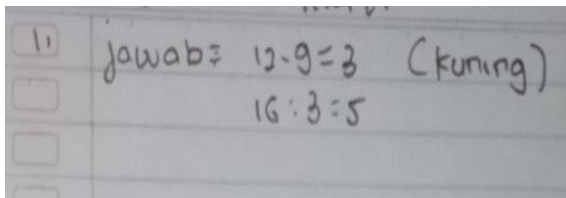 1. jawab = 12-9=3 (kuning)
16:3=5